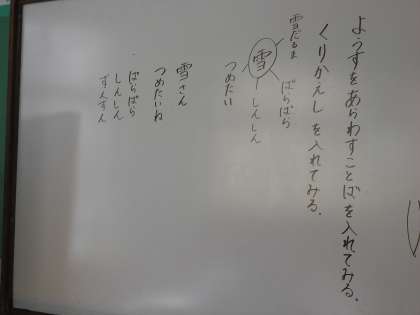 ようすをあらわすことばを入れてみる。
くりかえしを入れてみる。
雪だるま
雪
ぱらぱら
しんしん
つめたい
雪さん
つめたいね
ぱらぱら
しんしん
ずんずん